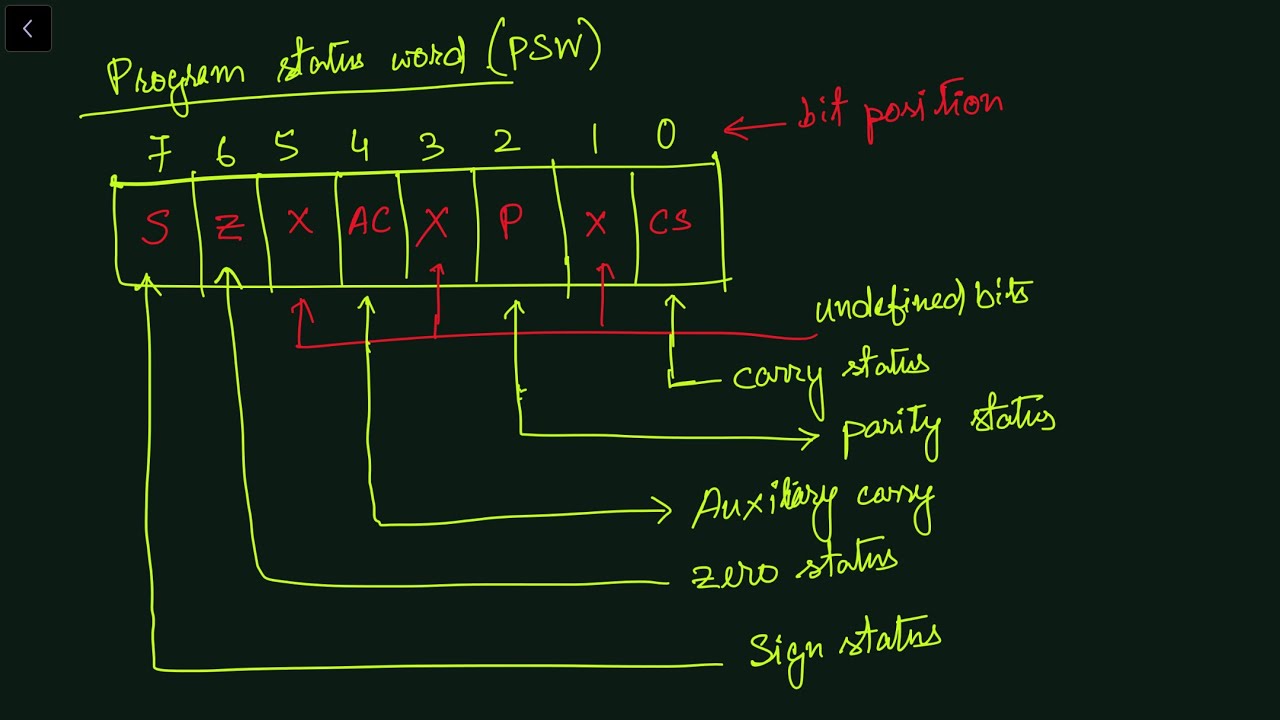 Program status word (PSW)
7 6 5 4 3 2 1 0 bit position
S Z X AC X P X CS
undefined bits
carry status
parity status
Auxiliary carry
zero status
Sign status